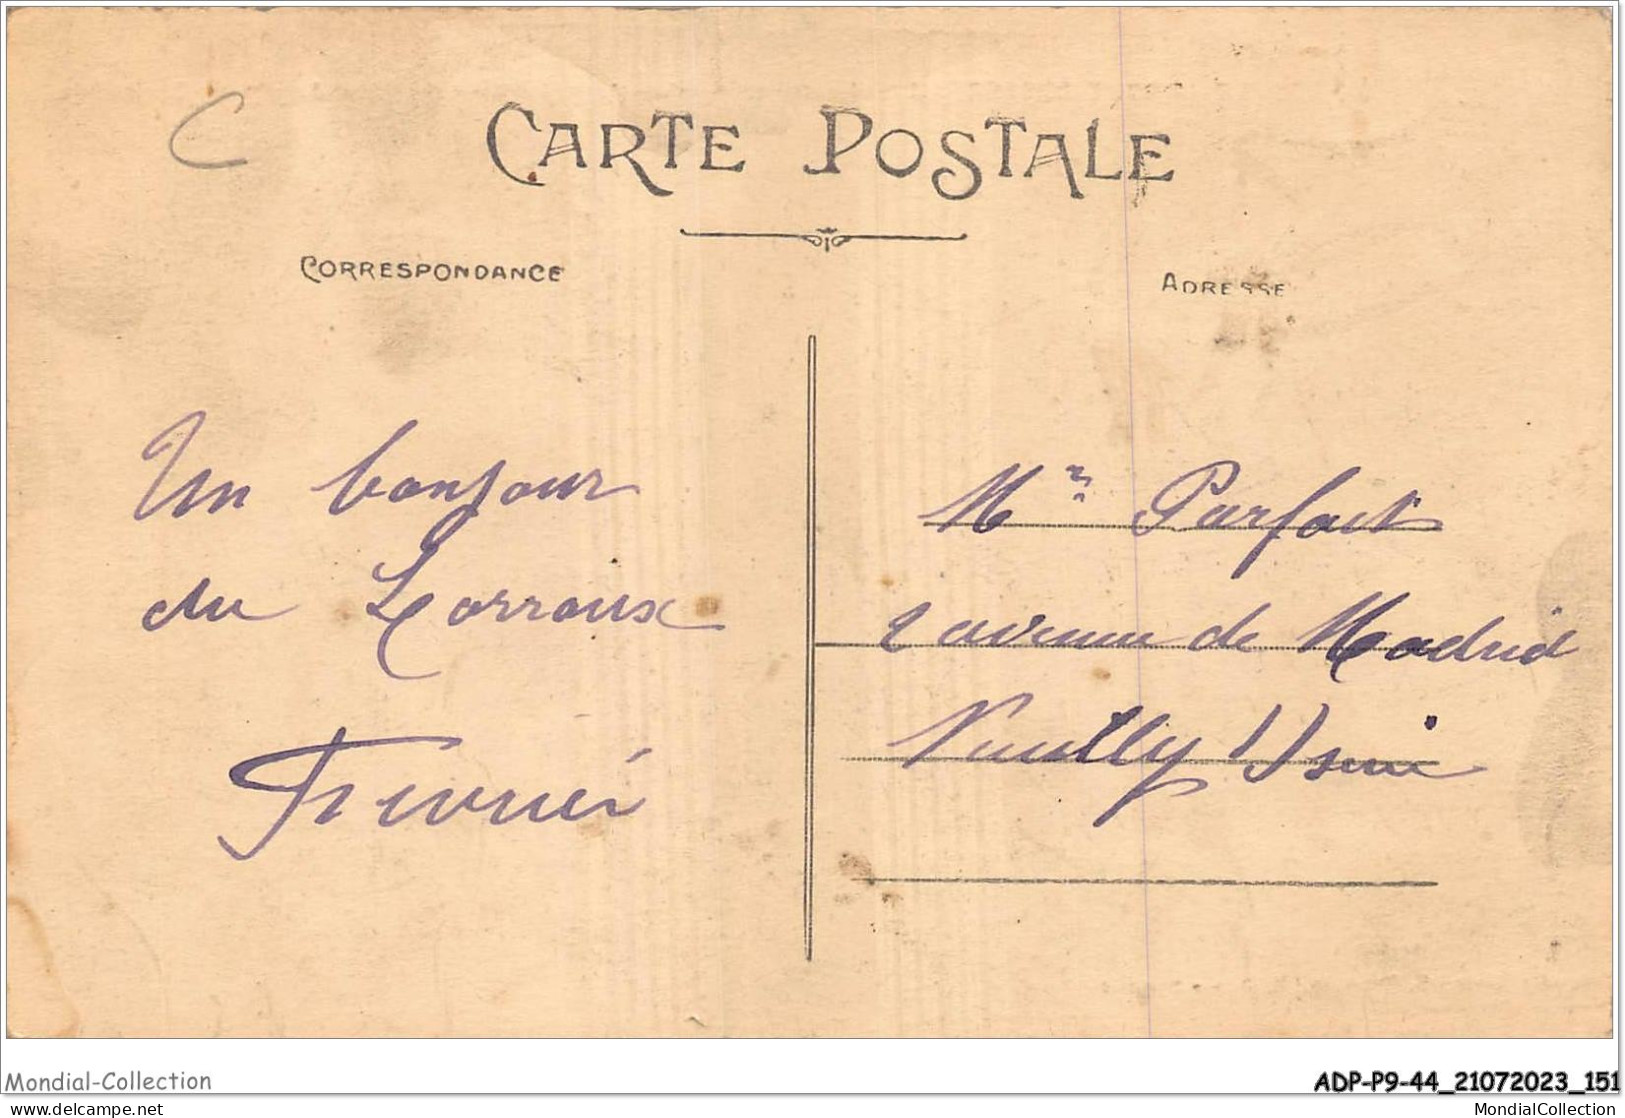 CARTE POSTALE
CORRESPONDANCE
ADRESSE
Un bonjour
du Lorroux
Mr Parfait
2 avenue de Madrid
Neuilly s/ Seine
Mondial-Collection
ADP-P9-44_21072023_151
www.delcampe.net
MondialCollection